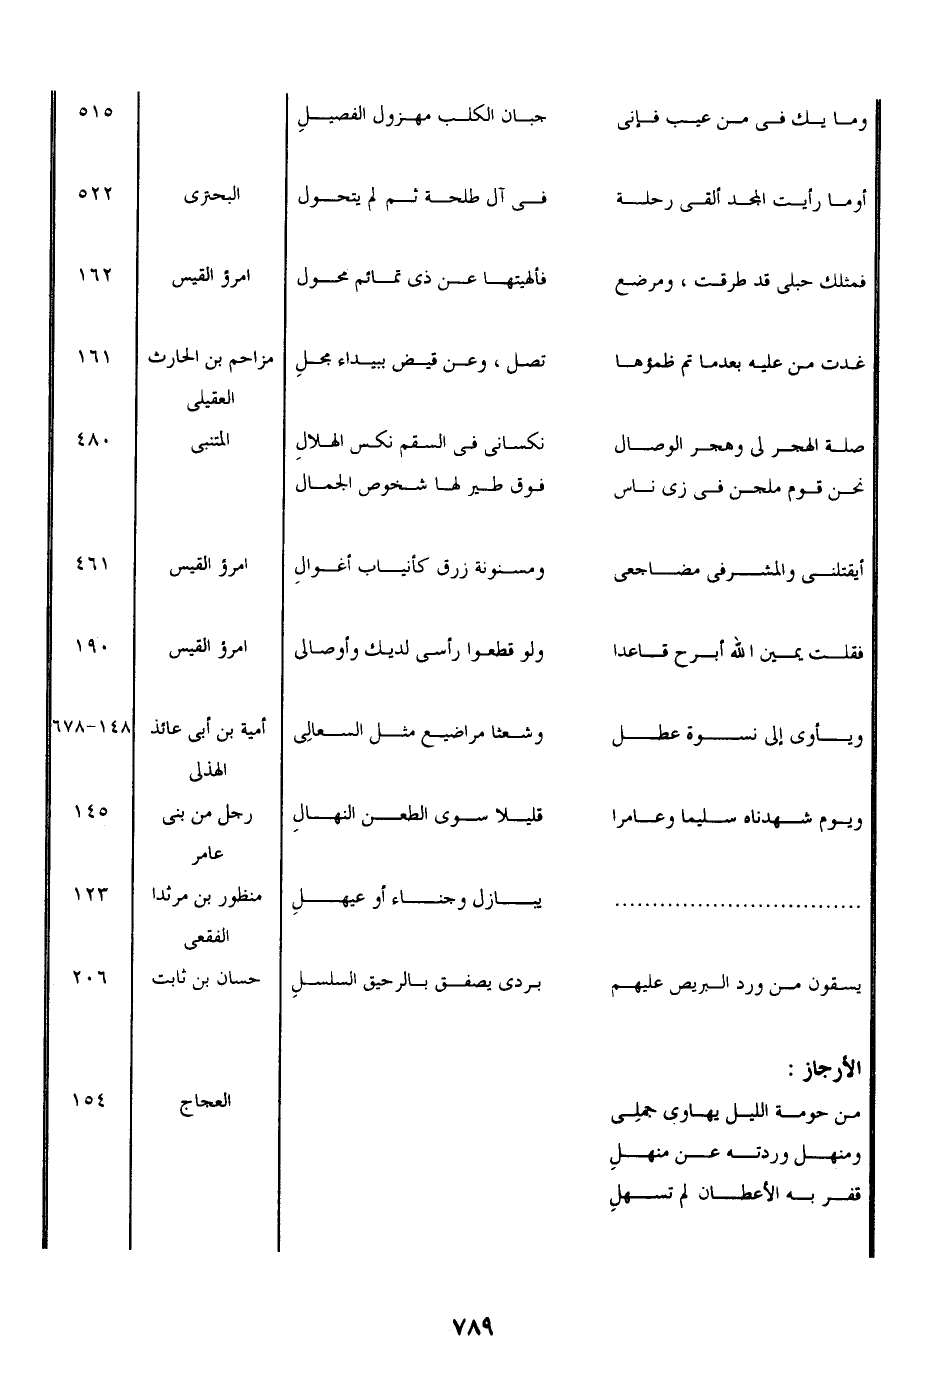 وما يك فى من عيب فإنى جبان الكلب مهزول الفصيلِ ٥١٥
أوما رأيت المجد ألقى رحلة فى آل طلحة ثم لم يتحول البحترى ٥٢٢
فمثلك حبلى قد طرقت ، ومرضع فألهيتها عن ذى تمائم محول امرؤ القيس ١٦٢
غدت من عليه بعدما تم ظمؤها تصل ، وعن قيض ببيداء مجلِ مزاحم بن الحارث ١٦١
العقيلى
صلة الهجر لى وهجر الوصال نكسانى فى السقم نكس الهلالِ المتنبى ٤٨٠
نحن قوم ملجن فى زى ناس فوق طير لها شخوص الجمال
أيقتلنى والمشرفى مضاجعى ومسنونة زرق كأنياب أغوالِ امرؤ القيس ٤٦١
فقلت يمين الله أبرح قاعدا ولو قطعوا رأسى لديك وأوصالى امرؤ القيس ١٩٠
ويأوى إلى نسوة عطل وشعثا مراضيع مثل السعالِى أمية بن أبى عائذ ١٤٨-٦٧٨
الهذلى
ويوم شهدناه سليما وعامرا قليلا سوى الطعن النهالِ رجل من بنى ١٤٥
عامر
................................ يبازل وجناء أو عيهلِ منظور بن مرثدا ١٢٣
الفقعى
يسقون من ورد البريص عليهم بردى يصفق بالرحيق السلسلِ حسان بن ثابت ٢٠٦
الأرجاز :
من حومة الليل يهاوى جملِى العجاج ١٥٤
ومنهل وردته عن منهلِ
قفر به الأعطان لم تسهلِ
٧٨٩